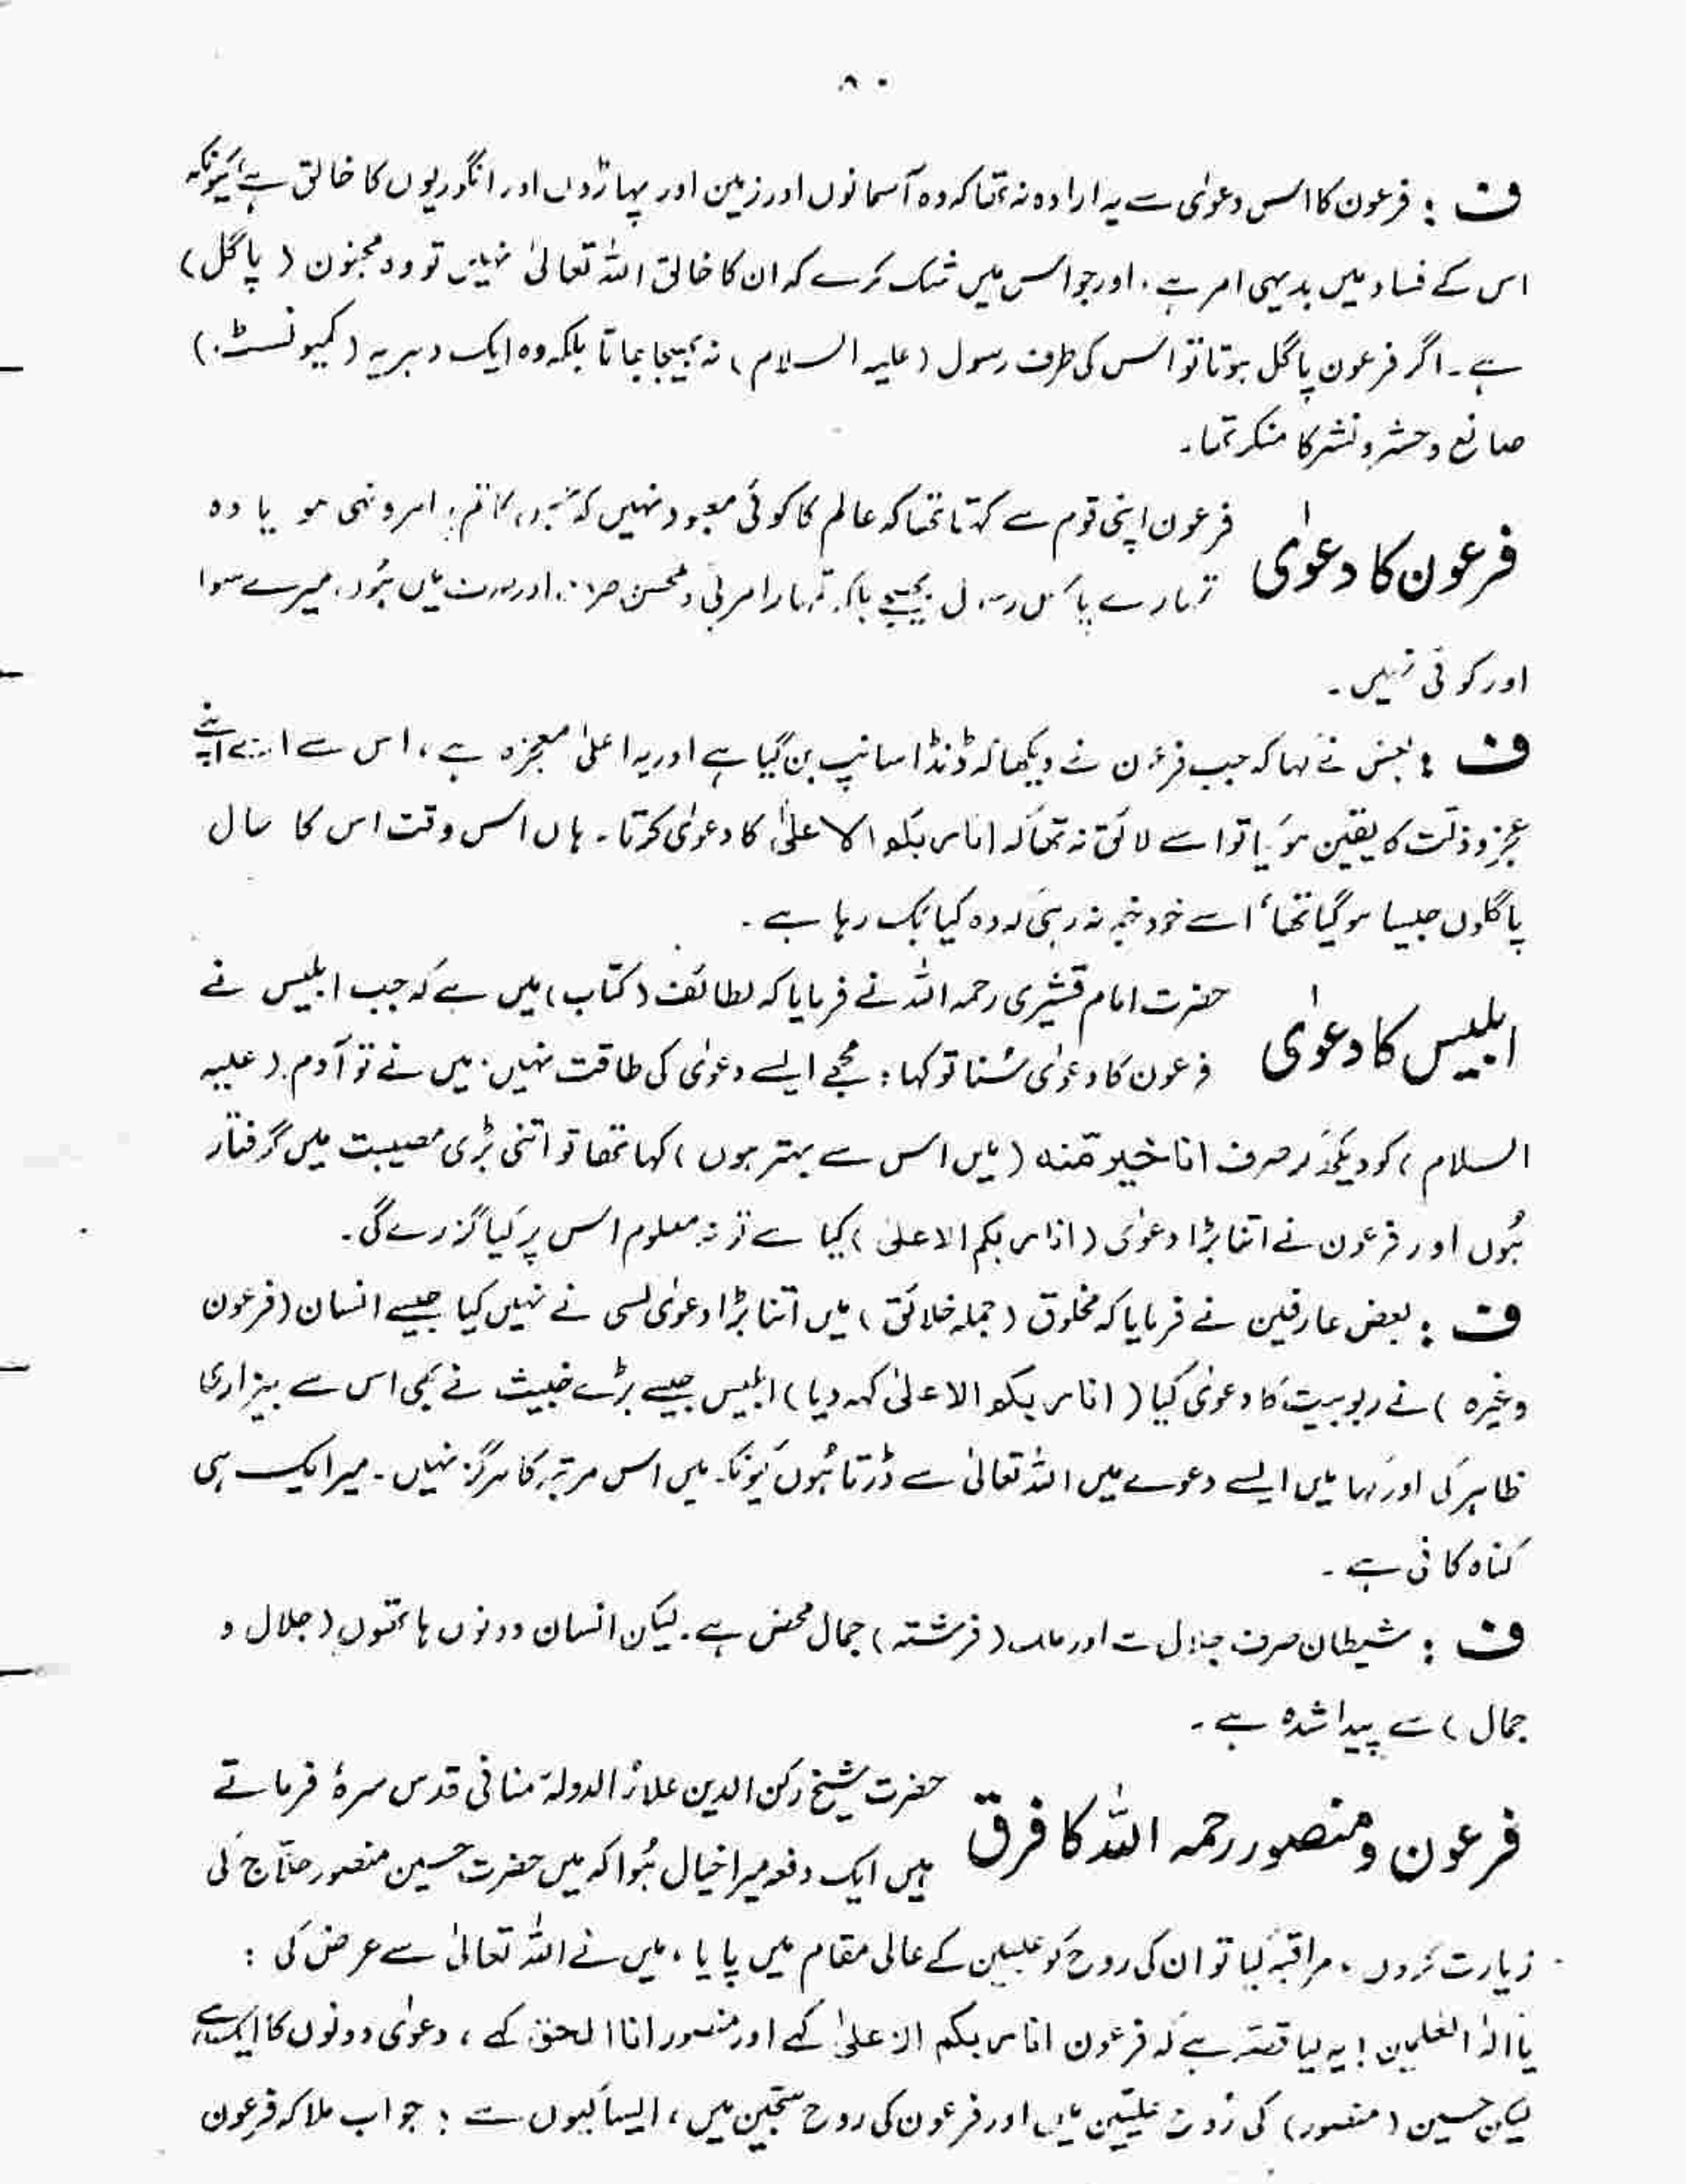 ۸۰
ف : فرعون کا اس دعوٰی سے یہ ارادہ نہ تھا کہ وہ آسمانوں اور زمین اور پہاڑوں اور انگوریوں کا خالق ہے، کیونکہ
اس کے فساد میں بدیہی امر ہے۔ اور جو اس میں شک کرے کہ ان کا خالق اللہ تعالیٰ نہیں تو وہ مجنون ( پاگل )
ہے۔ اگر فرعون پاگل ہوتا تو اس کی طرف رسول ( علیہ السلام ) نہ بھیجا جاتا بلکہ وہ ایک دہریہ ( کمیونسٹ )
صانع و حشر و نشر کا منکر تھا۔
فرعون کا دعوٰی
فرعون اپنی قوم سے کہتا تھا کہ عالم کا کوئی معبود نہیں کہ امر و نہی ہو یا وہ
تمہارے پاس رسول بھیجے بلکہ تمہارا مربی و محسن صرف اور صرف میں ہُوں، میرے سوا
اور کوئی نہیں۔
ف : بعض نے کہا کہ جب فرعون نے دیکھا کہ ڈنڈا سانپ بن گیا ہے اور یہ اعلیٰ معجزہ ہے، اس سے اسے اپنے
عجز و ذلّت کا یقین ہو گیا تو اسے لائق نہ تھا کہ انا ربکم الاعلیٰ کا دعوٰی کرتا۔ ہاں اس وقت اس کا حال
پاگلوں جیسا ہو گیا تھا، اسے خود خبر نہ رہی کہ وہ کیا بک رہا ہے۔
ابلیس کا دعوٰی
حضرت امام قشیری رحمہ اللہ نے فرمایا کہ لطائف ( کتاب ) میں ہے کہ جب ابلیس نے
فرعون کا دعوٰی سُنا تو کہا : مجھے ایسے دعوٰی کی طاقت نہیں، میں نے تو آدم ( علیہ
السلام ) کو دیکھ کر صرف انا خیر منه ( میں اس سے بہتر ہوں ) کہا تھا تو اتنی بڑی مصیبت میں گرفتار
ہُوں اور فرعون نے اتنا بڑا دعوٰی ( انا ربکم الاعلیٰ ) کیا ہے تو نہ معلوم اس پر کیا گزرے گی۔
ف : بعض عارفین نے فرمایا کہ مخلوق ( جملہ خلائق ) میں اتنا بڑا دعوٰی کسی نے نہیں کیا جیسے انسان ( فرعون
وغیرہ ) نے ربوبیت کا دعوٰی کیا ( انا ربکم الاعلیٰ کہہ دیا ) ابلیس جیسے بڑے خبیث نے بھی اس سے بیزاری
ظاہر کی اور کہا میں ایسے دعوے میں اللہ تعالیٰ سے ڈرتا ہُوں کیونکہ میں اس مرتبہ کا ہرگز نہیں۔ میرا ایک ہی
گناہ کافی ہے۔
ف : شیطان صرف جلال سے اور ملک ( فرشتہ ) جمال محض ہے۔ لیکن انسان دونوں ہاتھوں ( جلال و
جمال ) سے پیدا شدہ ہے۔
فرعون و منصور رحمہ اللہ کا فرق
حضرت شیخ رکن الدین علاؤ الدولہ منانی قدس سرہٗ فرماتے
ہیں ایک دفعہ میرا خیال ہُوا کہ میں حضرت حسین منصور حلّاج کی
زیارت کروں، مراقبہ کیا تو ان کی روح کو علیین کے عالی مقام میں پایا، میں نے اللہ تعالیٰ سے عرض کی :
یا الٰہ العٰلمین ! یہ کیا قصّہ ہے کہ فرعون انا ربکم الاعلیٰ کہے اور منصور انا الحق کہے، دعوٰی دونوں کا ایک ہے
لیکن حسین ( منصور ) کی رُوح علّیین میں اور فرعون کی روح سجّین میں، ایسا کیوں ہے ؛ جواب ملا کہ فرعون